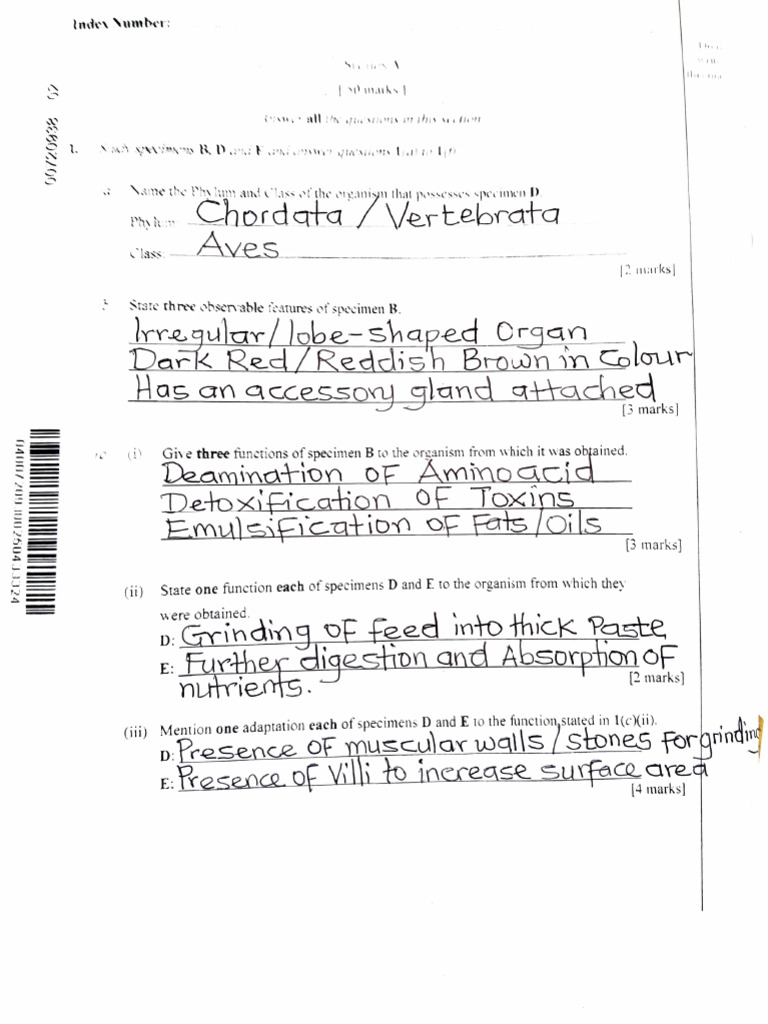 Index Number:
Section A
[50 marks]
Answer all the questions in this section
00720938 02
1. specimens B, D and E and answer questions 1(a) to 1(f)
a Name the Phylum and Class of the organism that possesses specimen D.
Phylum Chordata / Vertebrata
Class: Aves
[2 marks]
State three observable features of specimen B.
Irregular/lobe-shaped Organ
Dark Red/Reddish Brown in Colour
Has an accessory gland attached
[3 marks]
(i) Give three functions of specimen B to the organism from which it was obtained.
Deamination of Amino acid
Detoxification of Toxins
Emulsification of Fats/Oils
[3 marks]
(ii) State one function each of specimens D and E to the organism from which they
were obtained.
D: Grinding of feed into thick Paste
E: Further digestion and Absorption of
nutrients.
[2 marks]
(iii) Mention one adaptation each of specimens D and E to the function stated in 1(c)(ii).
D: Presence of muscular walls / stones for grinding
E: Presence of Villi to increase surface area
[4 marks]